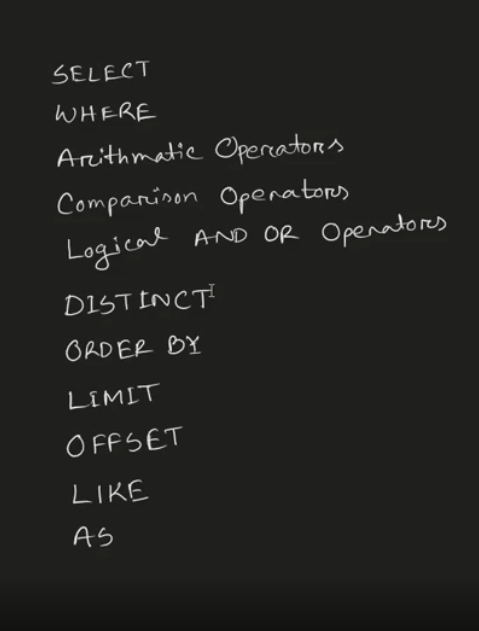 SELECT
WHERE
Arithmatic Operators
Comparison Operators
Logical AND OR Operators
DISTINCT
ORDER BY
LIMIT
OFFSET
LIKE
AS